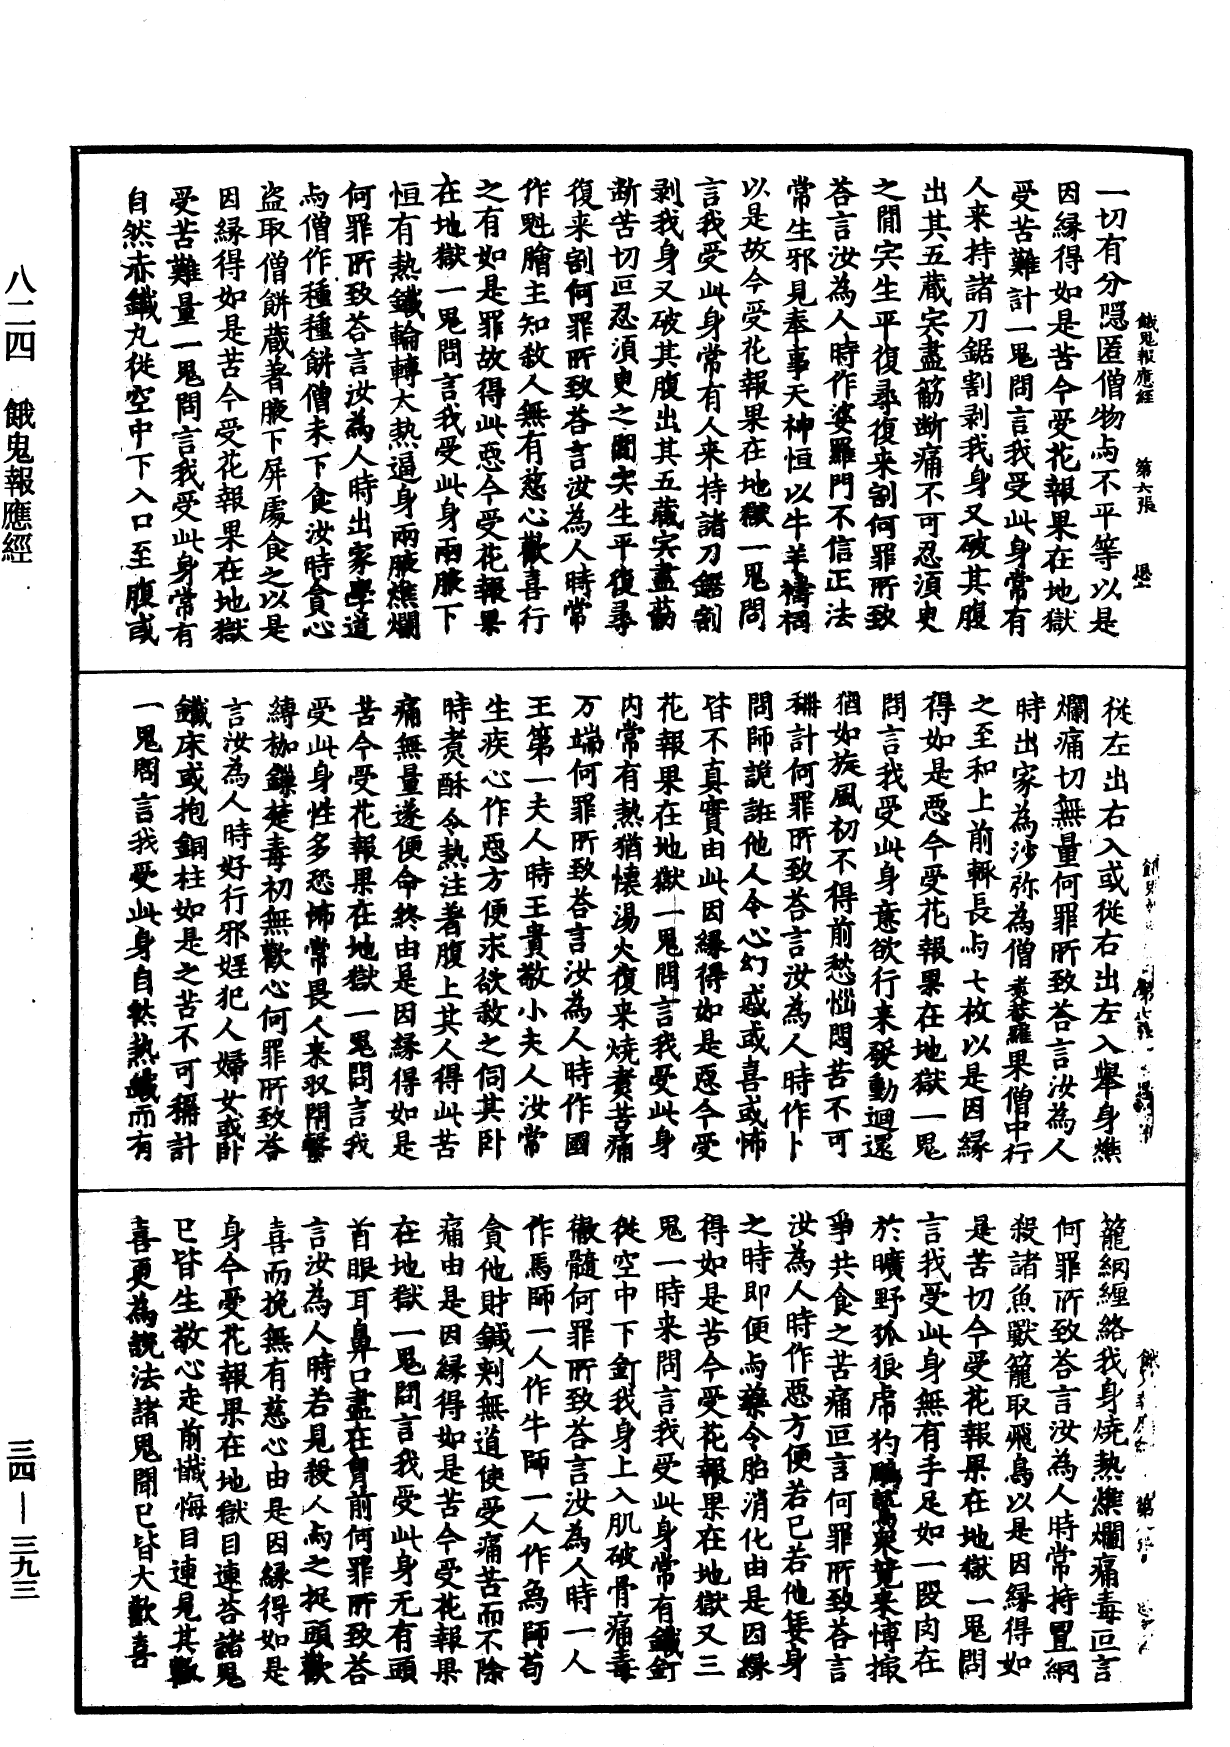 八二四　餓鬼報應經
三四—三九三
餓鬼報應經　第六張
一切有分隱匿僧物与不平等以是
因緣得如是苦今受花報果在地獄
受苦難計一鬼問言我受此身常有
人来持諸刀鋸割剥我身又破其腹
出其五藏宍盡筋断痛不可忍湏臾
之間宍生平復尋復来割何罪所致
荅言汝為人時作婆羅門不信正法
常生邪見奉事天神恒以牛羊禱祠
以是故今受花報果在地獄一鬼問
言我受此身常有人来持諸刀鋸割
剥我身又破其腹出其五藏宍盡筋
断苦切叵忍湏臾之間宍生平復尋
復来割何罪所致荅言汝為人時常
作魁膾主知敎人無有慈心歡喜行
之有如是罪故得此惡今受花報果
在地獄一鬼問言我受此身兩腋下
恒有熱鐵輪轉大熱逼身兩腋燋爛
何罪所致荅言汝為人時出家學道
与僧作種種餅僧未下食汝時貪心
盗取僧餅藏著腋下屏處食之以是
因緣得如是苦今受花報果在地獄
受苦難量一鬼問言我受此身常有
自然赤鐵丸從空中下入口至腹或
從左出右入或従右出左入舉身燋
爛痛切無量何罪所致荅言汝為人
時出家為沙弥為僧煮菴羅果僧中行
之至和上前輙長与七枚以是因緣
得如是惡今受花報果在地獄一鬼
問言我受此身意欲行来發動迴還
猶如旋風初不得前愁惱悶苦不可
稱計何罪所致荅言汝為人時作卜
問師詭誑他人令心幻惑或喜或怖
皆不真實由此因緣得如是惡今受
花報果在地獄一鬼問言我受此身
内常有熱猶懐湯火復来燒煮苦痛
万端何罪所致荅言汝為人時作國
王第一夫人時王貴敬小夫人汝常
生疾心作惡方便求欲敎之伺其卧
時煑酥令熱注著腹上其人得此苦
痛無量遂便命終由是因緣得如是
苦今受花報果在地獄一鬼問言我
受此身性多恐怖常畏人来収閇繫
縛枷鏁楚毒初無歡心何罪所致荅
言汝為人時好行邪婬犯人婦女或卧
鐵床或抱銅柱如是之苦不可稱計
一鬼問言我受此身自然熱鐵而有
籠網纒絡我身燒熱燋爛痛毒叵言
何罪所致荅言汝為人時常持罝網
殺諸魚獸籠取飛鳥以是因緣得如
是苦切今受花報果在地獄一鬼問
言我受此身無有手足如一段肉在
於曠野狐狼虎豹鵰鷲来競来愽撮
爭共食之苦痛叵言何罪所致荅言
汝為人時作惡方便若己若他妊身
之時即便与藥令胎消化由是因緣
得如是苦今受花報果在地獄又三
鬼一時来問言我受此身常有鐵釘
従空中下釘我身上入肌破骨痛毒
徹髓何罪所致荅言汝為人時一人
作馬師一人作牛師一人作為師苟
貪他財鍼刾無道使受痛苦而不除
痛由是因緣得如是苦今受花報果
在地獄一鬼問言我受此身无有頭
首眼耳鼻口盡在胷前何罪所致荅
言汝為人時若見殺人与之捉頭歡
喜而挽無有慈心由是因緣得如是
身今受花報果在地獄目連荅諸鬼
已皆生敬心走前懺悔目連見其歡
喜更為說法諸鬼聞已皆大歡喜